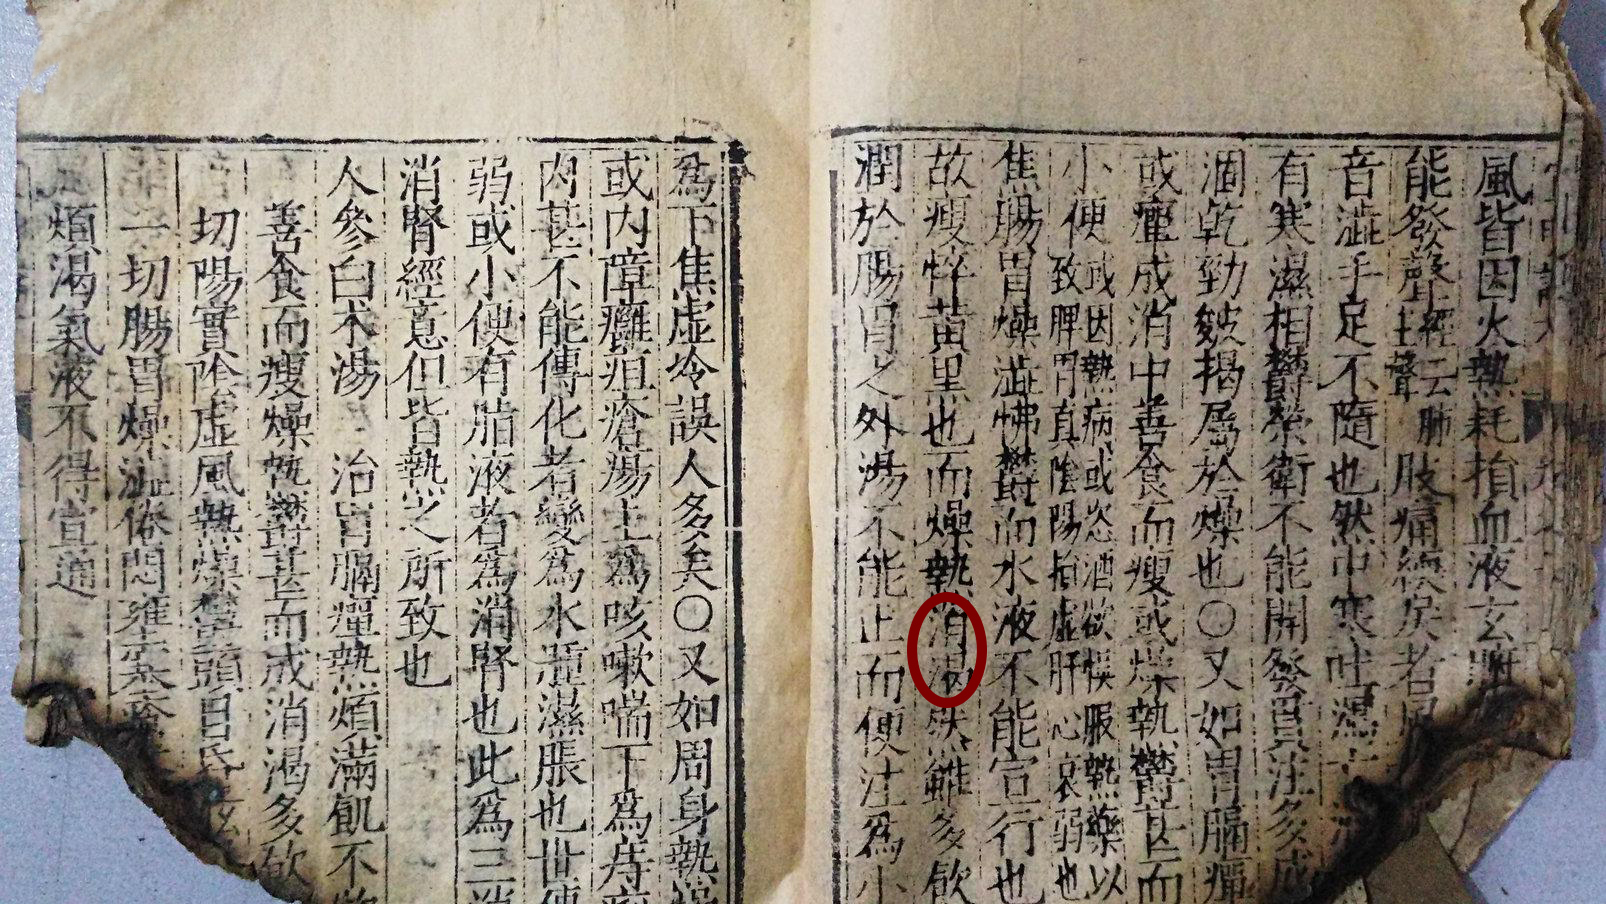 風皆因火熱耗損血液玄府
能發聲經云肺主聲肢痛緛戾者風
音澁手足不隨也然中寒吐瀉亡液
有寒濕相鬱榮衛不能開發貫注多成
涸乾勁皴揭屬於燥也〇又如胃膈癉
或癉成消中善食而瘦或燥熱鬱甚而
小便或因熱病或恣酒欲悞服熱藥以
致脾胃真陰陽損虛肝心衰弱也
焦腸胃燥澁怫鬱而水液不能宣行也
故瘦悴黃黑也而燥熱消渴然雖多飲
潤於腸胃之外湯不能止而便注為小
為下焦虛冷誤人多矣〇又如周身熱燥
或內障癰疽瘡瘍上為咳嗽喘下為痔
內甚不能傳化者變為水腫濕脹也世
弱或小便有脂液者為消腎也此為三消
消腎經意但皆熱之所致也
人參白朮湯 治胃膈癉熱煩滿飢不
善食而瘦燥熱鬱甚而成消渴多飲
切陽實陰虛風熱燥鬱頭目昏眩
一切腸胃燥澁倦悶壅
煩渴氣液不得宣通